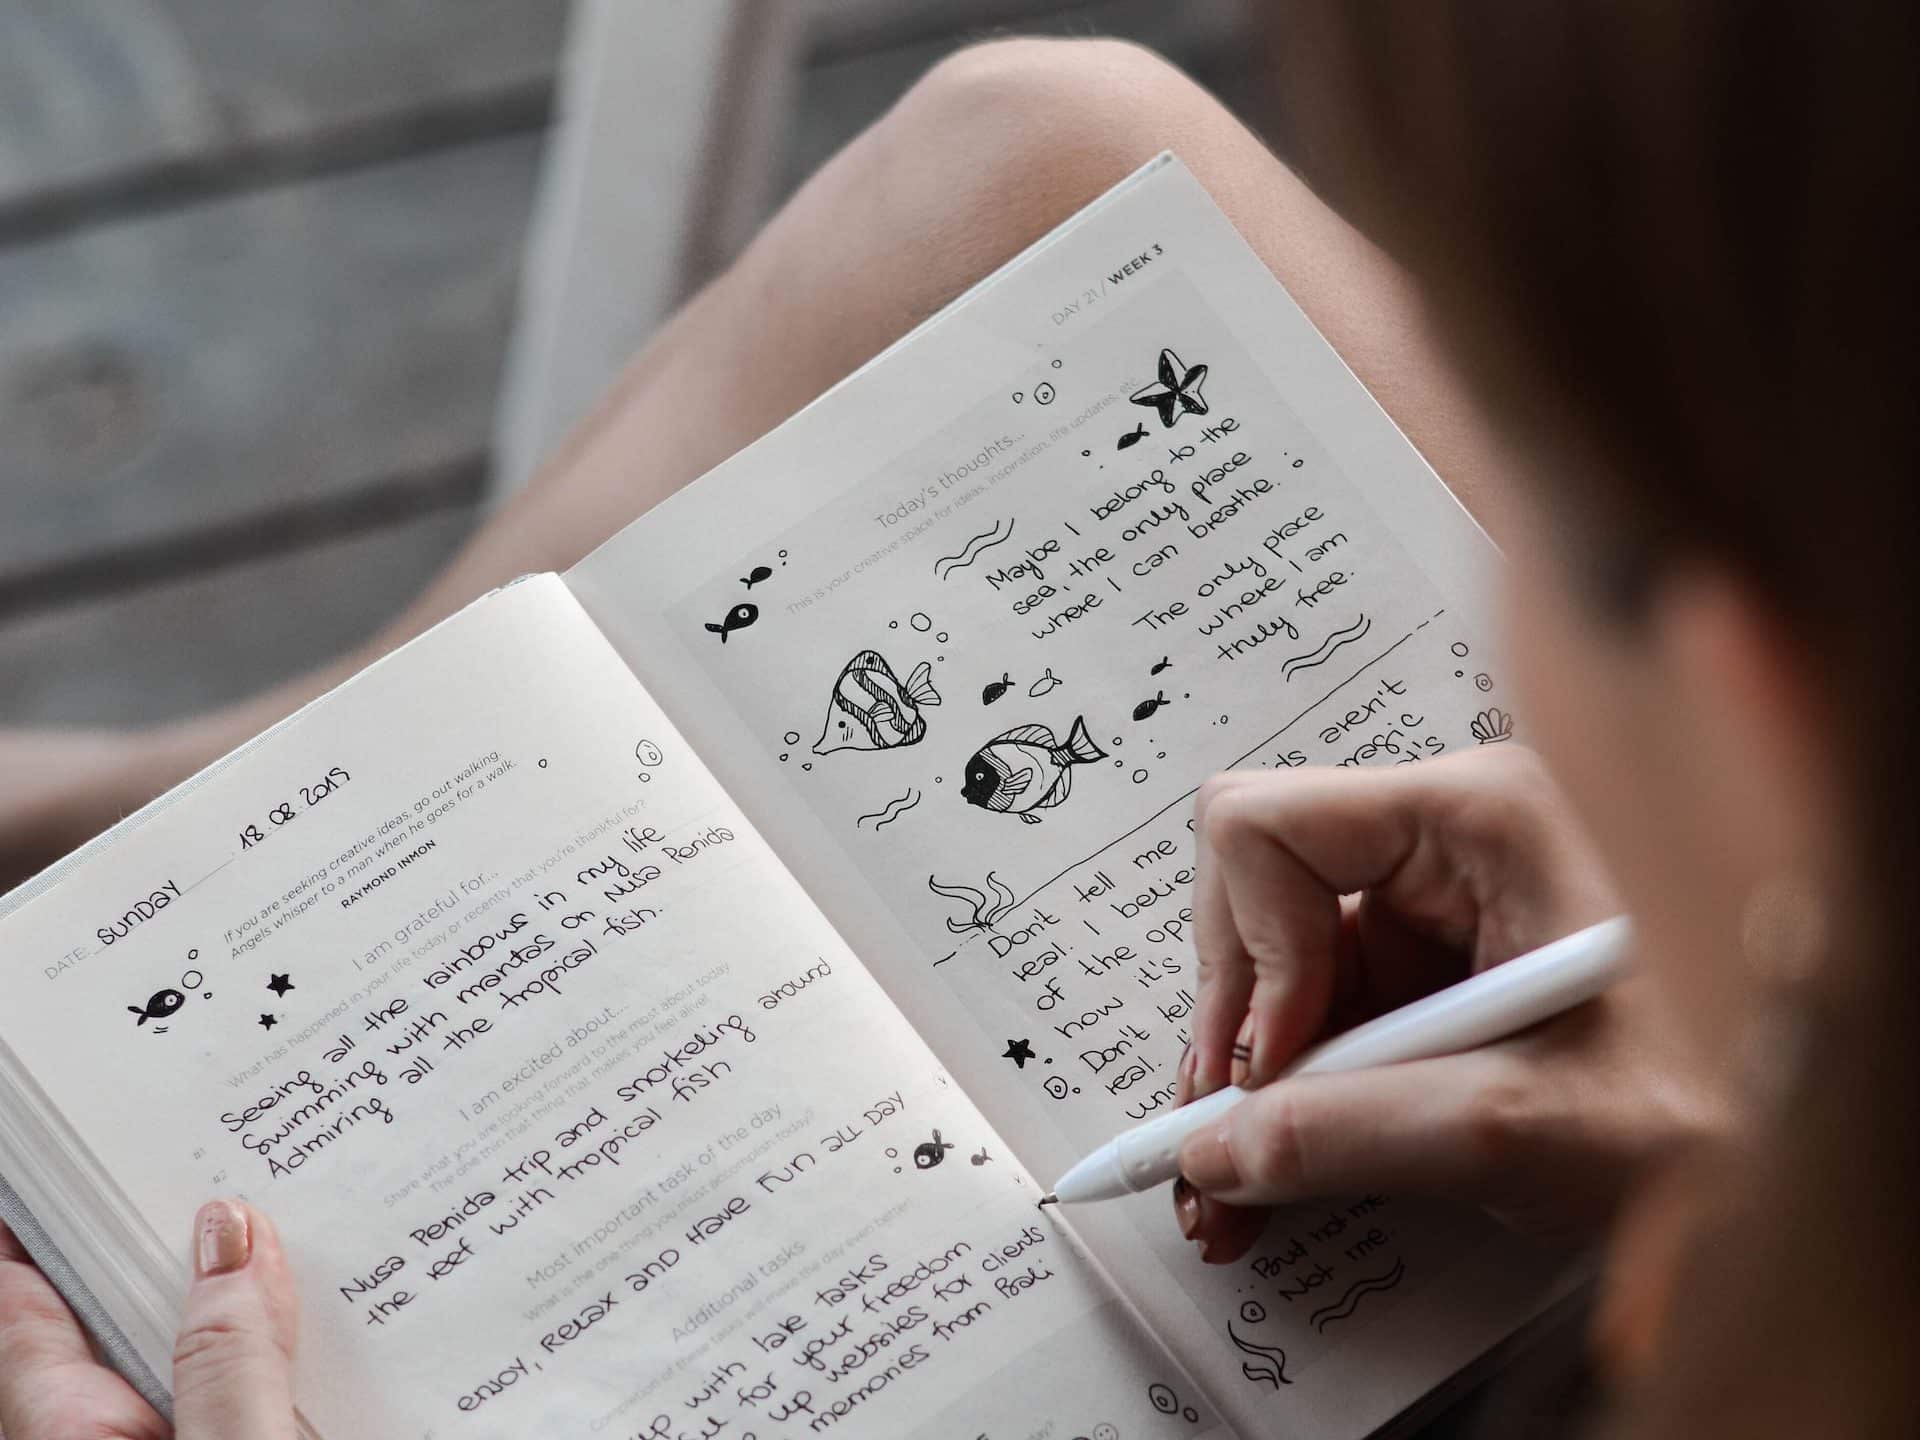 DATE: SUNDAY 18.08.2019
If you are seeking creative ideas, go out walking.
Angels whisper to a man when he goes for a walk.
RAYMOND INMON
I am grateful for...
What has happened in your life today or recently that you're thankful for?
#1 Seeing all the rainbows in my life
#2 Swimming with mantas on Nusa Penida
Admiring all the tropical fish.
I am excited about...
Share what you are looking forward to the most about today
The one thing that makes you feel alive!
Nusa Penida trip and snorkeling around
the reef with tropical fish
Most important task of the day
What is the one thing you must accomplish today?
ENJOY, RELAX AND HAVE FUN ALL DAY
Additional tasks
Completion of these tasks will make the day even better!
up with late tasks
for your freedom
up websites for clients
memories from Bali
DAY 21 / WEEK 3
Today's thoughts...
This is your creative space for ideas, inspiration, life updates, etc
Maybe I belong to the
sea, the only place
where I can breathe.
The only place
where I am
truly free.
aren't
magic
Don't tell me
real. I
of the
how it's
Don't tell
real.
But not me.
Not me.